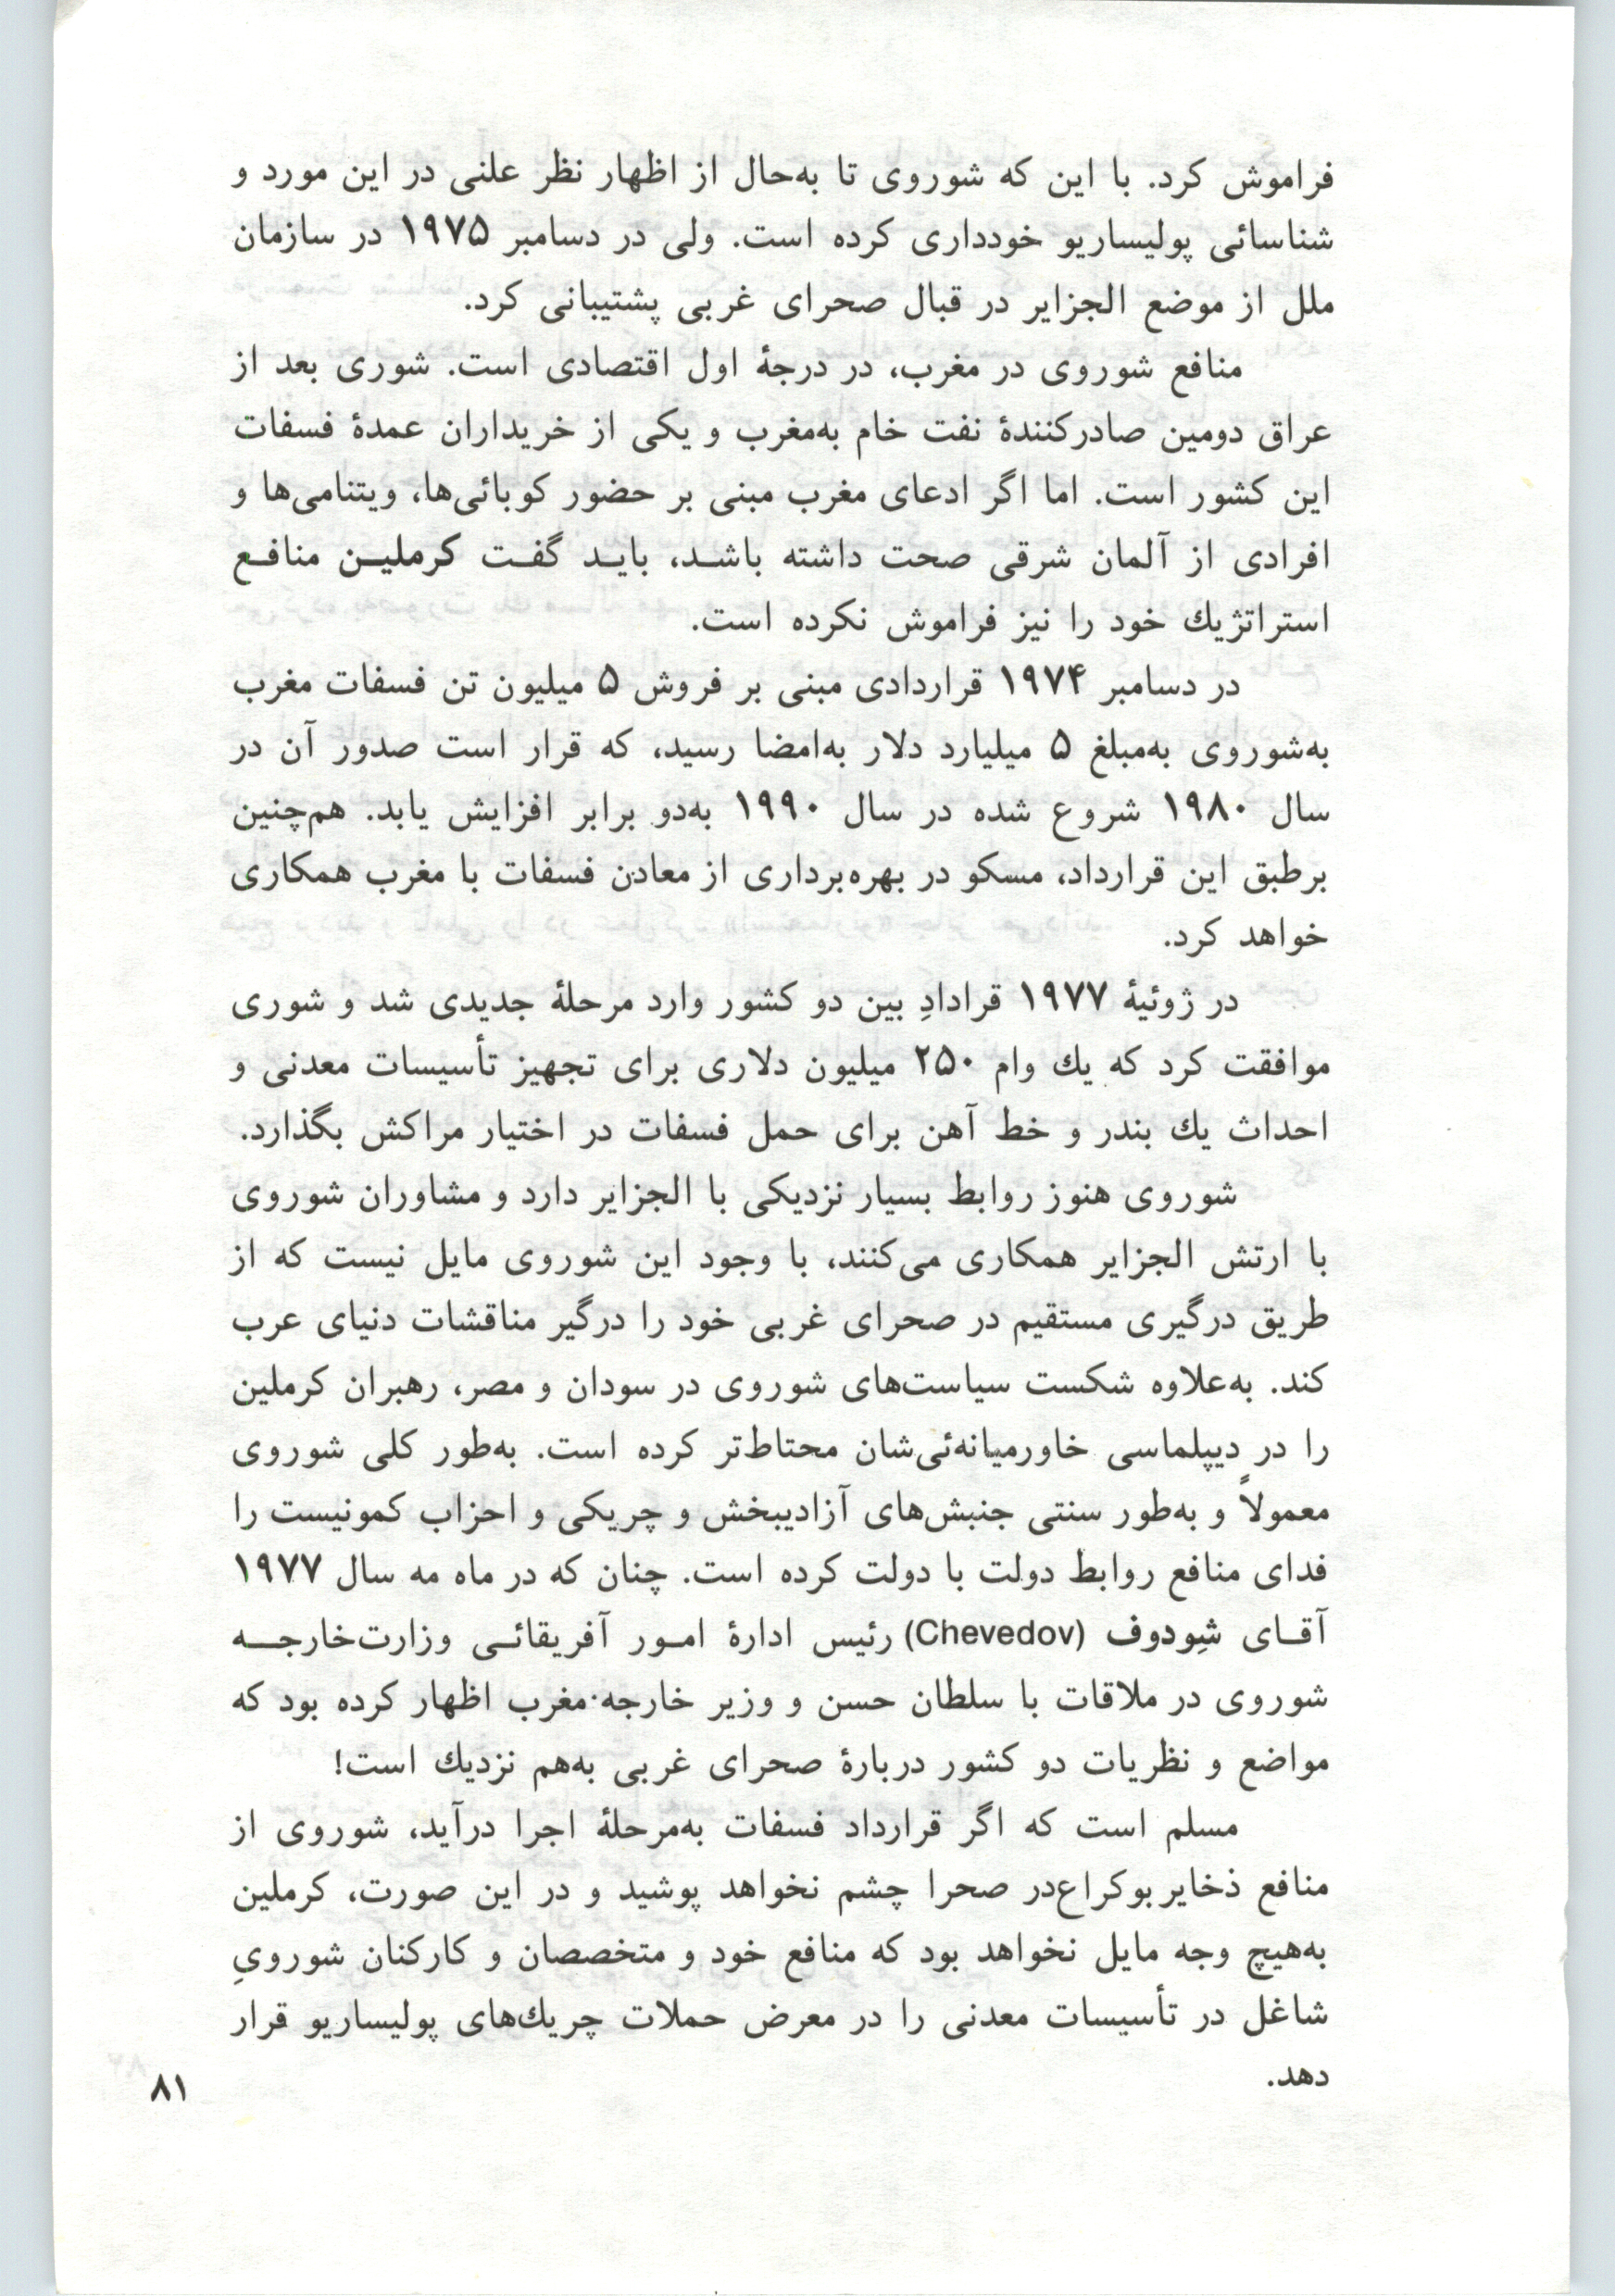 فراموش کرد. با این که شوروی تا به‌حال از اظهار نظر علنی در این مورد و
شناسائی پولیساریو خودداری کرده است. ولی در دسامبر ۱۹۷۵ در سازمان
ملل از موضع الجزایر در قبال صحرای غربی پشتیبانی کرد.
منافع شوروی در مغرب، در درجهٔ اول اقتصادی است. شوری بعد از
عراق دومین صادرکنندهٔ نفت خام به‌مغرب و یکی از خریداران عمدهٔ فسفات
این کشور است. اما اگر ادعای مغرب مبنی بر حضور کوبائی‌ها، ویتنامی‌ها و
افرادی از آلمان شرقی صحت داشته باشـد، بایـد گفـت کرملیـن منافـع
استراتژیك خود را نیز فراموش نکرده است.
در دسامبر ۱۹۷۴ قراردادی مبنی بر فروش ۵ میلیون تن فسفات مغرب
به‌شوروی به‌مبلغ ۵ میلیارد دلار به‌امضا رسید، که قرار است صدور آن در
سال ۱۹۸۰ شروع شده در سال ۱۹۹۰ به‌دو برابر افزایش یابد. هم‌چنین
برطبق این قرارداد، مسکو در بهره‌برداری از معادن فسفات با مغرب همکاری
خواهد کرد.
در ژوئیهٔ ۱۹۷۷ قرادادِ بین دو کشور وارد مرحلهٔ جدیدی شد و شوری
موافقت کرد که یك وام ۲۵۰ میلیون دلاری برای تجهیز تأسیسات معدنی و
احداث یك بندر و خط آهن برای حمل فسفات در اختیار مراکش بگذارد.
شوروی هنوز روابط بسیار نزدیکی با الجزایر دارد و مشاوران شوروی
با ارتش الجزایر همکاری می‌کنند، با وجود این شوروی مایل نیست که از
طریق درگیری مستقیم در صحرای غربی خود را درگیر مناقشات دنیای عرب
کند. به‌علاوه شکست سیاست‌های شوروی در سودان و مصر، رهبران کرملین
را در دیپلماسی خاورمیانه‌ئی‌شان محتاط‌تر کرده است. به‌طور کلی شوروی
معمولاً و به‌طور سنتی جنبش‌های آزادیبخش و چریکی و احزاب کمونیست را
فدای منافع روابط دولت با دولت کرده است. چنان که در ماه مه سال ۱۹۷۷
آقـای شِودوف (Chevedov) رئیس ادارهٔ امـور آفریقائـی وزارت‌خارجـه
شوروی در ملاقات با سلطان حسن و وزیر خارجه مغرب اظهار کرده بود که
مواضع و نظریات دو کشور دربارهٔ صحرای غربی به‌هم نزدیك است!
مسلم است که اگر قرارداد فسفات به‌مرحلهٔ اجرا درآید، شوروی از
منافع ذخایر بوکراع‌در صحرا چشم نخواهد پوشید و در این صورت، کرملین
به‌هیچ وجه مایل نخواهد بود که منافع خود و متخصصان و کارکنان شورویِ
شاغل در تأسیسات معدنی را در معرض حملات چریك‌های پولیساریو قرار
دهد.
۸۱